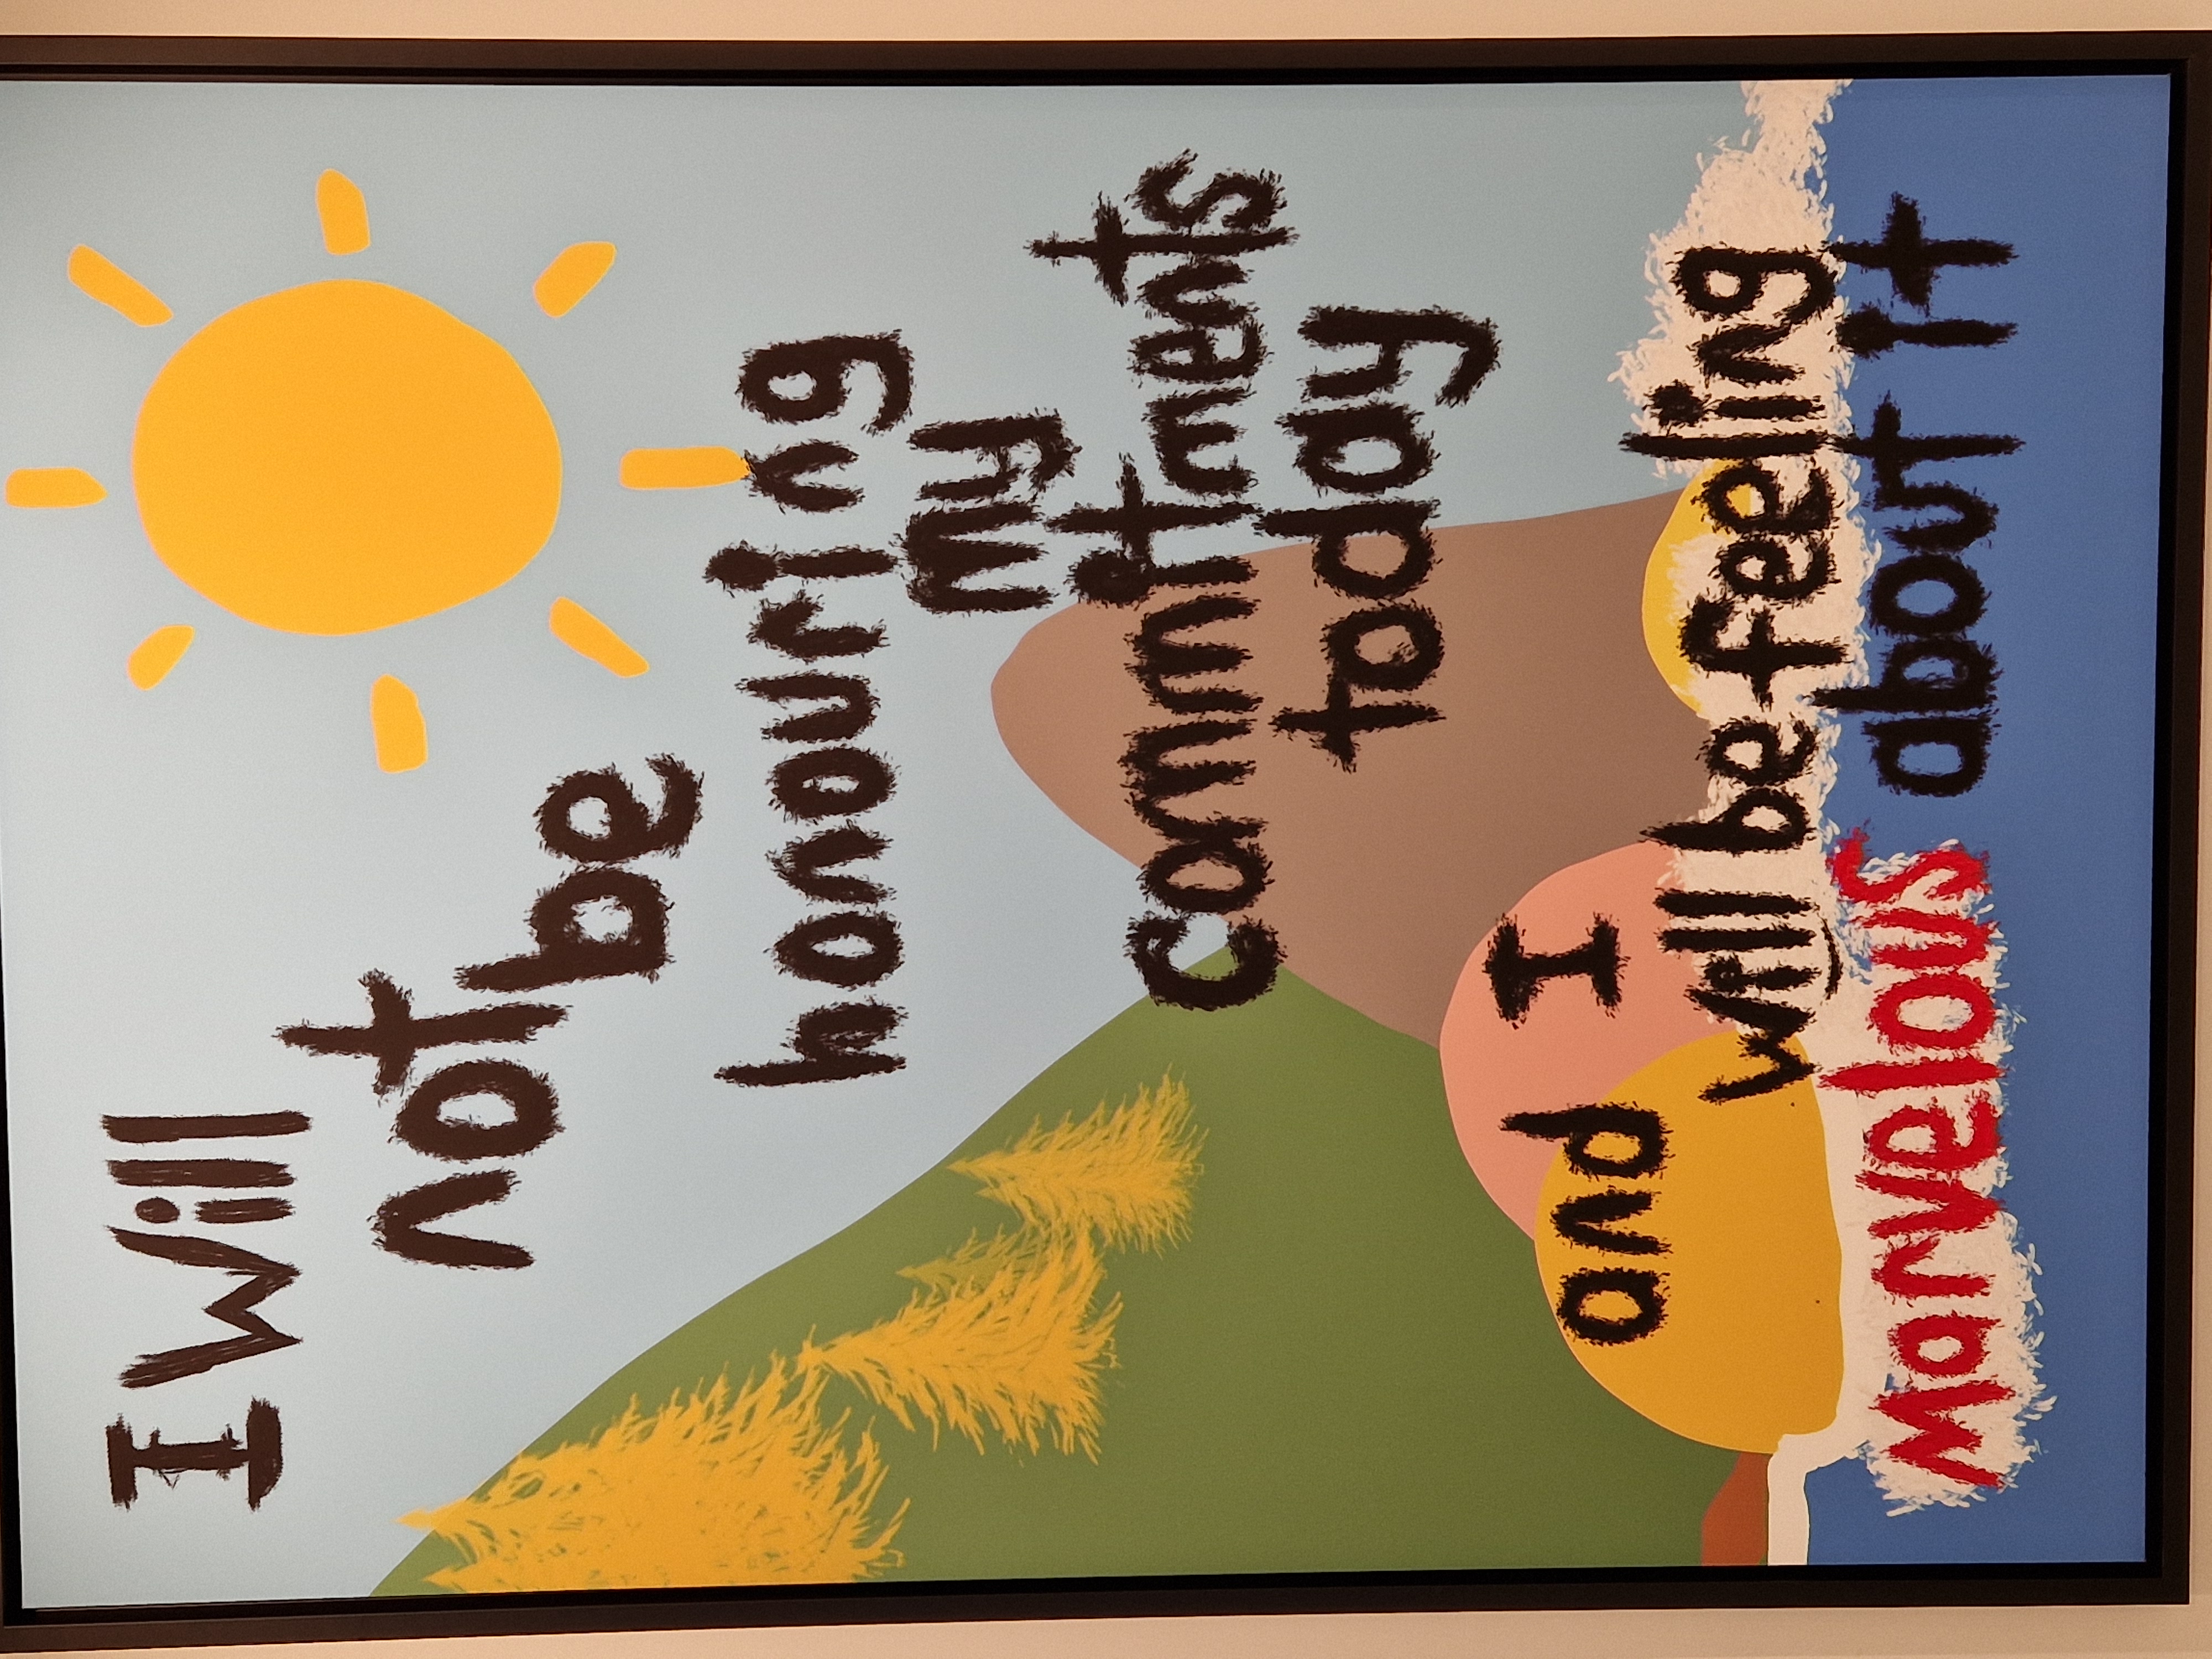 I Will
not be
honouring
my
commitments
today
and I
will be feeling
marvelous about it